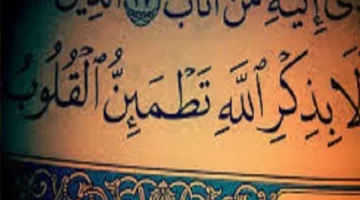 ىٓ إِلَيْهِ مَنْ أَنَابَ ٢٧ ٱلَّذِينَ
لَا بِذِكْرِ ٱللَّهِ تَطْمَئِنُّ ٱلْقُلُوبُ